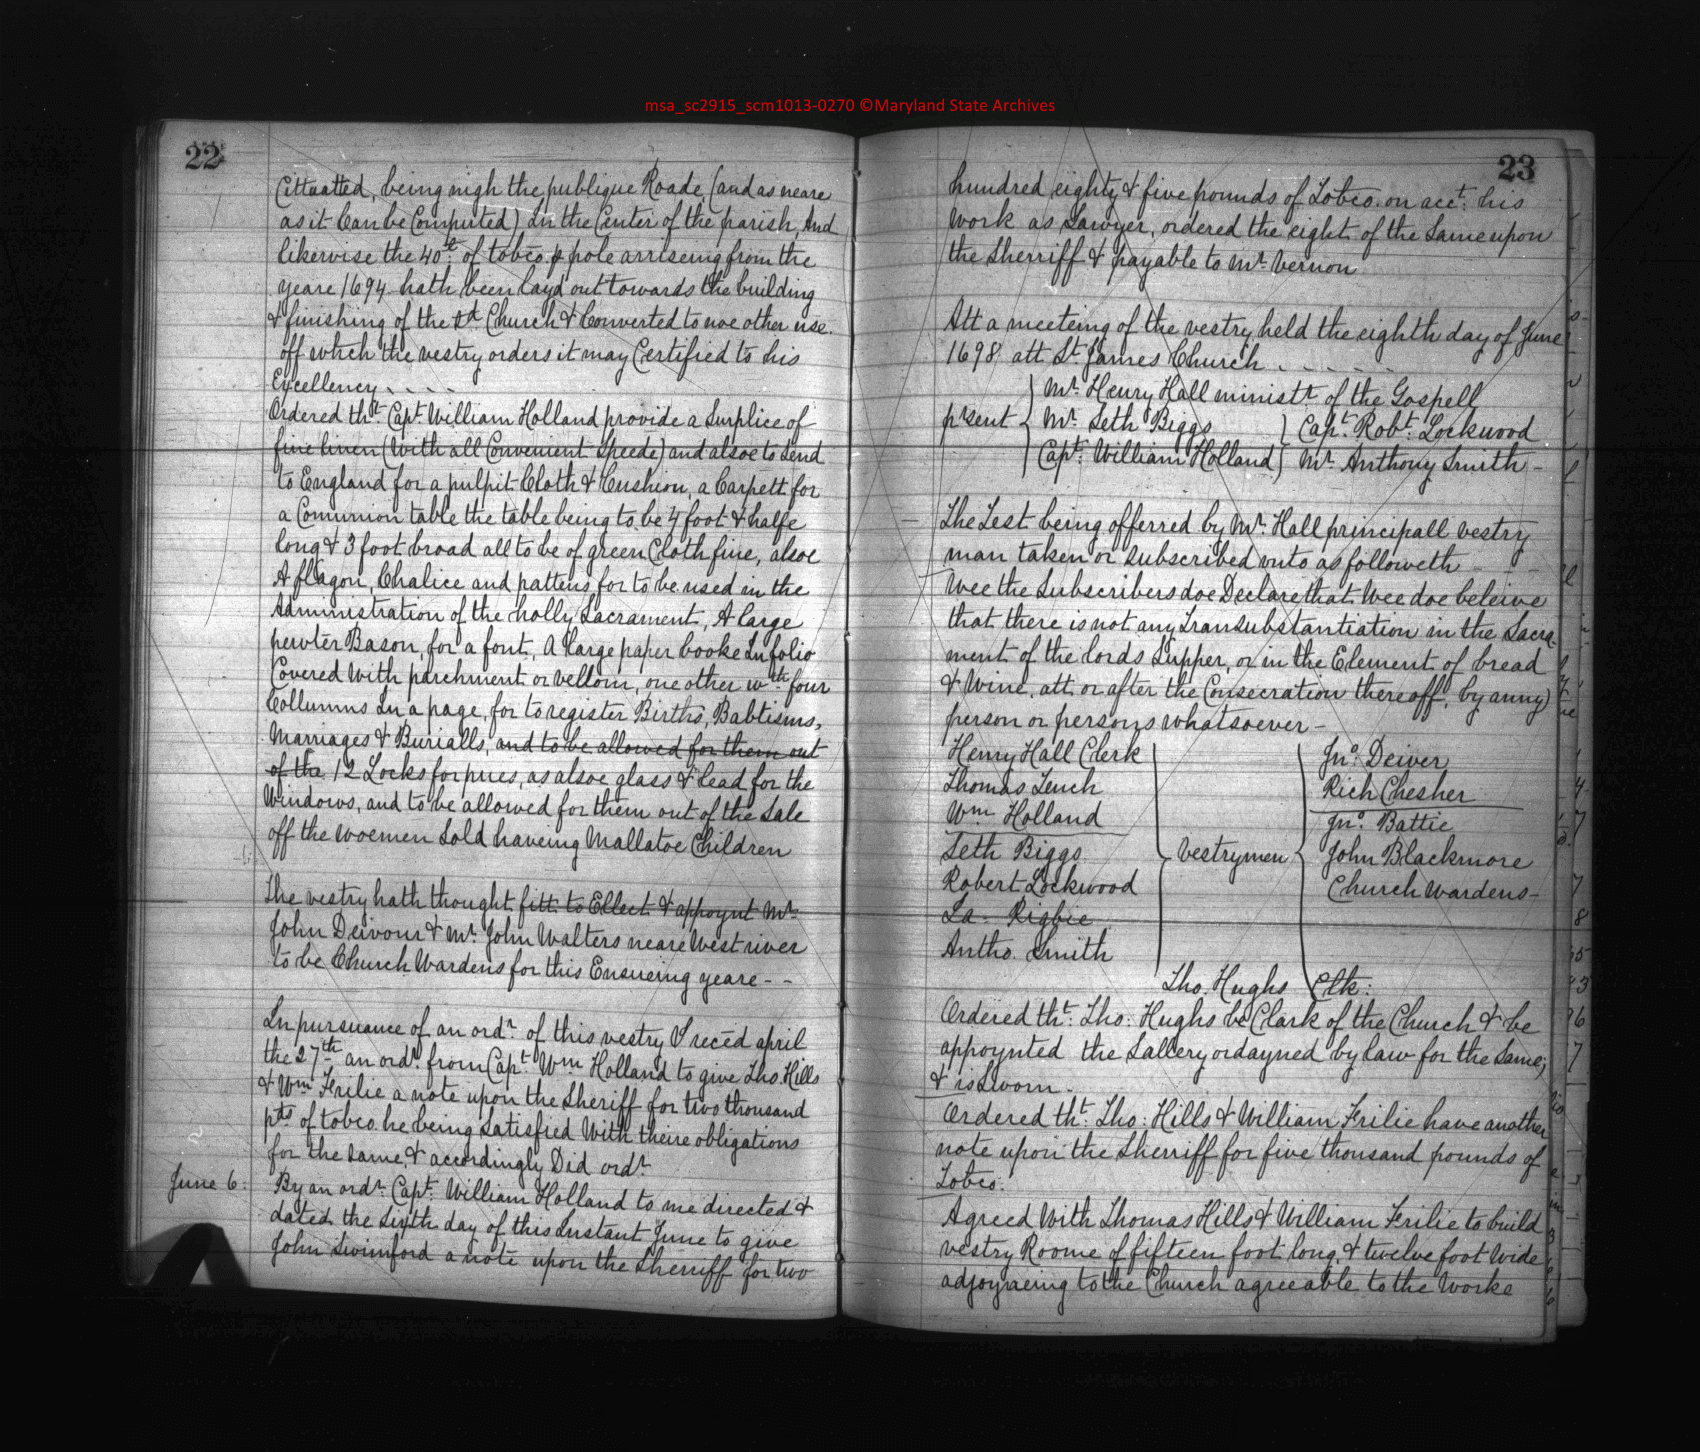 msa_sc2915_scm1013-0270 ©Maryland State Archives
22
Cittuatted, being nigh the publique Roade (and as neare
as it Can be Computed) In the Center of the parish, And
likewise the 40lt of tobco p pole arriseing from the
yeare 1694 hath been layd out towards the building
& finishing of the sd Church & Converted to noe other use.
off which the vestry orders it may Certified to his
Excellency - - - -
Ordered tht Capt William Holland provide a Surplice of
fine linen (with all Convenient Speede) and alsoe to Send
to England for a pulpit Cloth & Cushion, a Carpett for
a Comunion table the table being to be 4 foot & halfe
long & 3 foot broad all to be of green Cloth fine, alsoe
A flagon, Chalice and pattens for to be used in the
Administration of the holly Sacrament, A large
pewter Bason, for a font, A large paper booke In folio
Covered With parchment or vellom, one other wth four
Collumns In a page, for to register Births, Babtisms,
Marriages & Burialls, and to be allowed for them out
of the 12 Locks for pues, as alsoe glass & lead for the
Windows, and to be allowed for them out of the Sale
off the woemen Sold haveing Mallatoe Children
The vestry hath thought fitt to Ellect & appoynt Mr.
John Deivour & Mr. John Walters neare West river
to be Church Wardens for this Ensueing yeare - -
In pursuance of an ordr of this vestry I recēd april
the 27th an ordr from Capt Wm Holland to give Tho. Hills
& Wm Frilie a note upon the Sheriff for two thousand
pds of tobco. he being Satisfied With theire obligations
for the same, & accordingly Did ordr
June 6: By an ordr Capt William Holland to me directed &
dated the Sixth day of this Instant June to give
John Swinford a note upon the Sherriff for two
23
hundred eighty & five pounds of Tobco. on acct: his
Work as Sawyer, ordered the eight of the Same upon
the Sherriff & payable to Mr. Vernon
Att a meeteing of the vestry held the eighth day of June
1698 att St James Church - - - - -
Mr. Henry Hall ministr of the Gospell
prsent { Mr. Seth Biggs } Capt. Robt. Lockwood
Capt. William Holland } Mr. Anthony Smith -
The Test being offerred by Mr. Hall principall vestry
man taken or subscribed vnto as followeth - - -
Wee the Subscribers doe Declare that Wee doe beleive
that there is not any Transubstantiation in the Sacra-
ment of the lords Supper, or in the Element of bread
& Wine, att or after the Consecration thereoff, by anny
person or persons whatsoever -
Henry Hall Clerk
Thomas Tench
Wm Holland
Seth Biggs
Robert Lockwood
La- Rigbie
Antho. Smith
Vestrymen
Jno. Deiver
Rich Chesher
Jno. Battie
John Blackmore
Church Wardens -
Tho. Hughs Clk:
Ordered tht: Tho: Hughs be Clark of the Church & be
appoynted the Sallery ordayned by law for the Same;
& is Sworn -
Ordered tht. Tho: Hills & William Frilie have another
note upon the Sherriff for five thousand pounds of
Tobco.
Agreed With Thomas Hills & William Frilie to build
vestry Roome of fifteen foot long, & twelve foot Wide
adjoyneing to the Church agreeable to the Worke